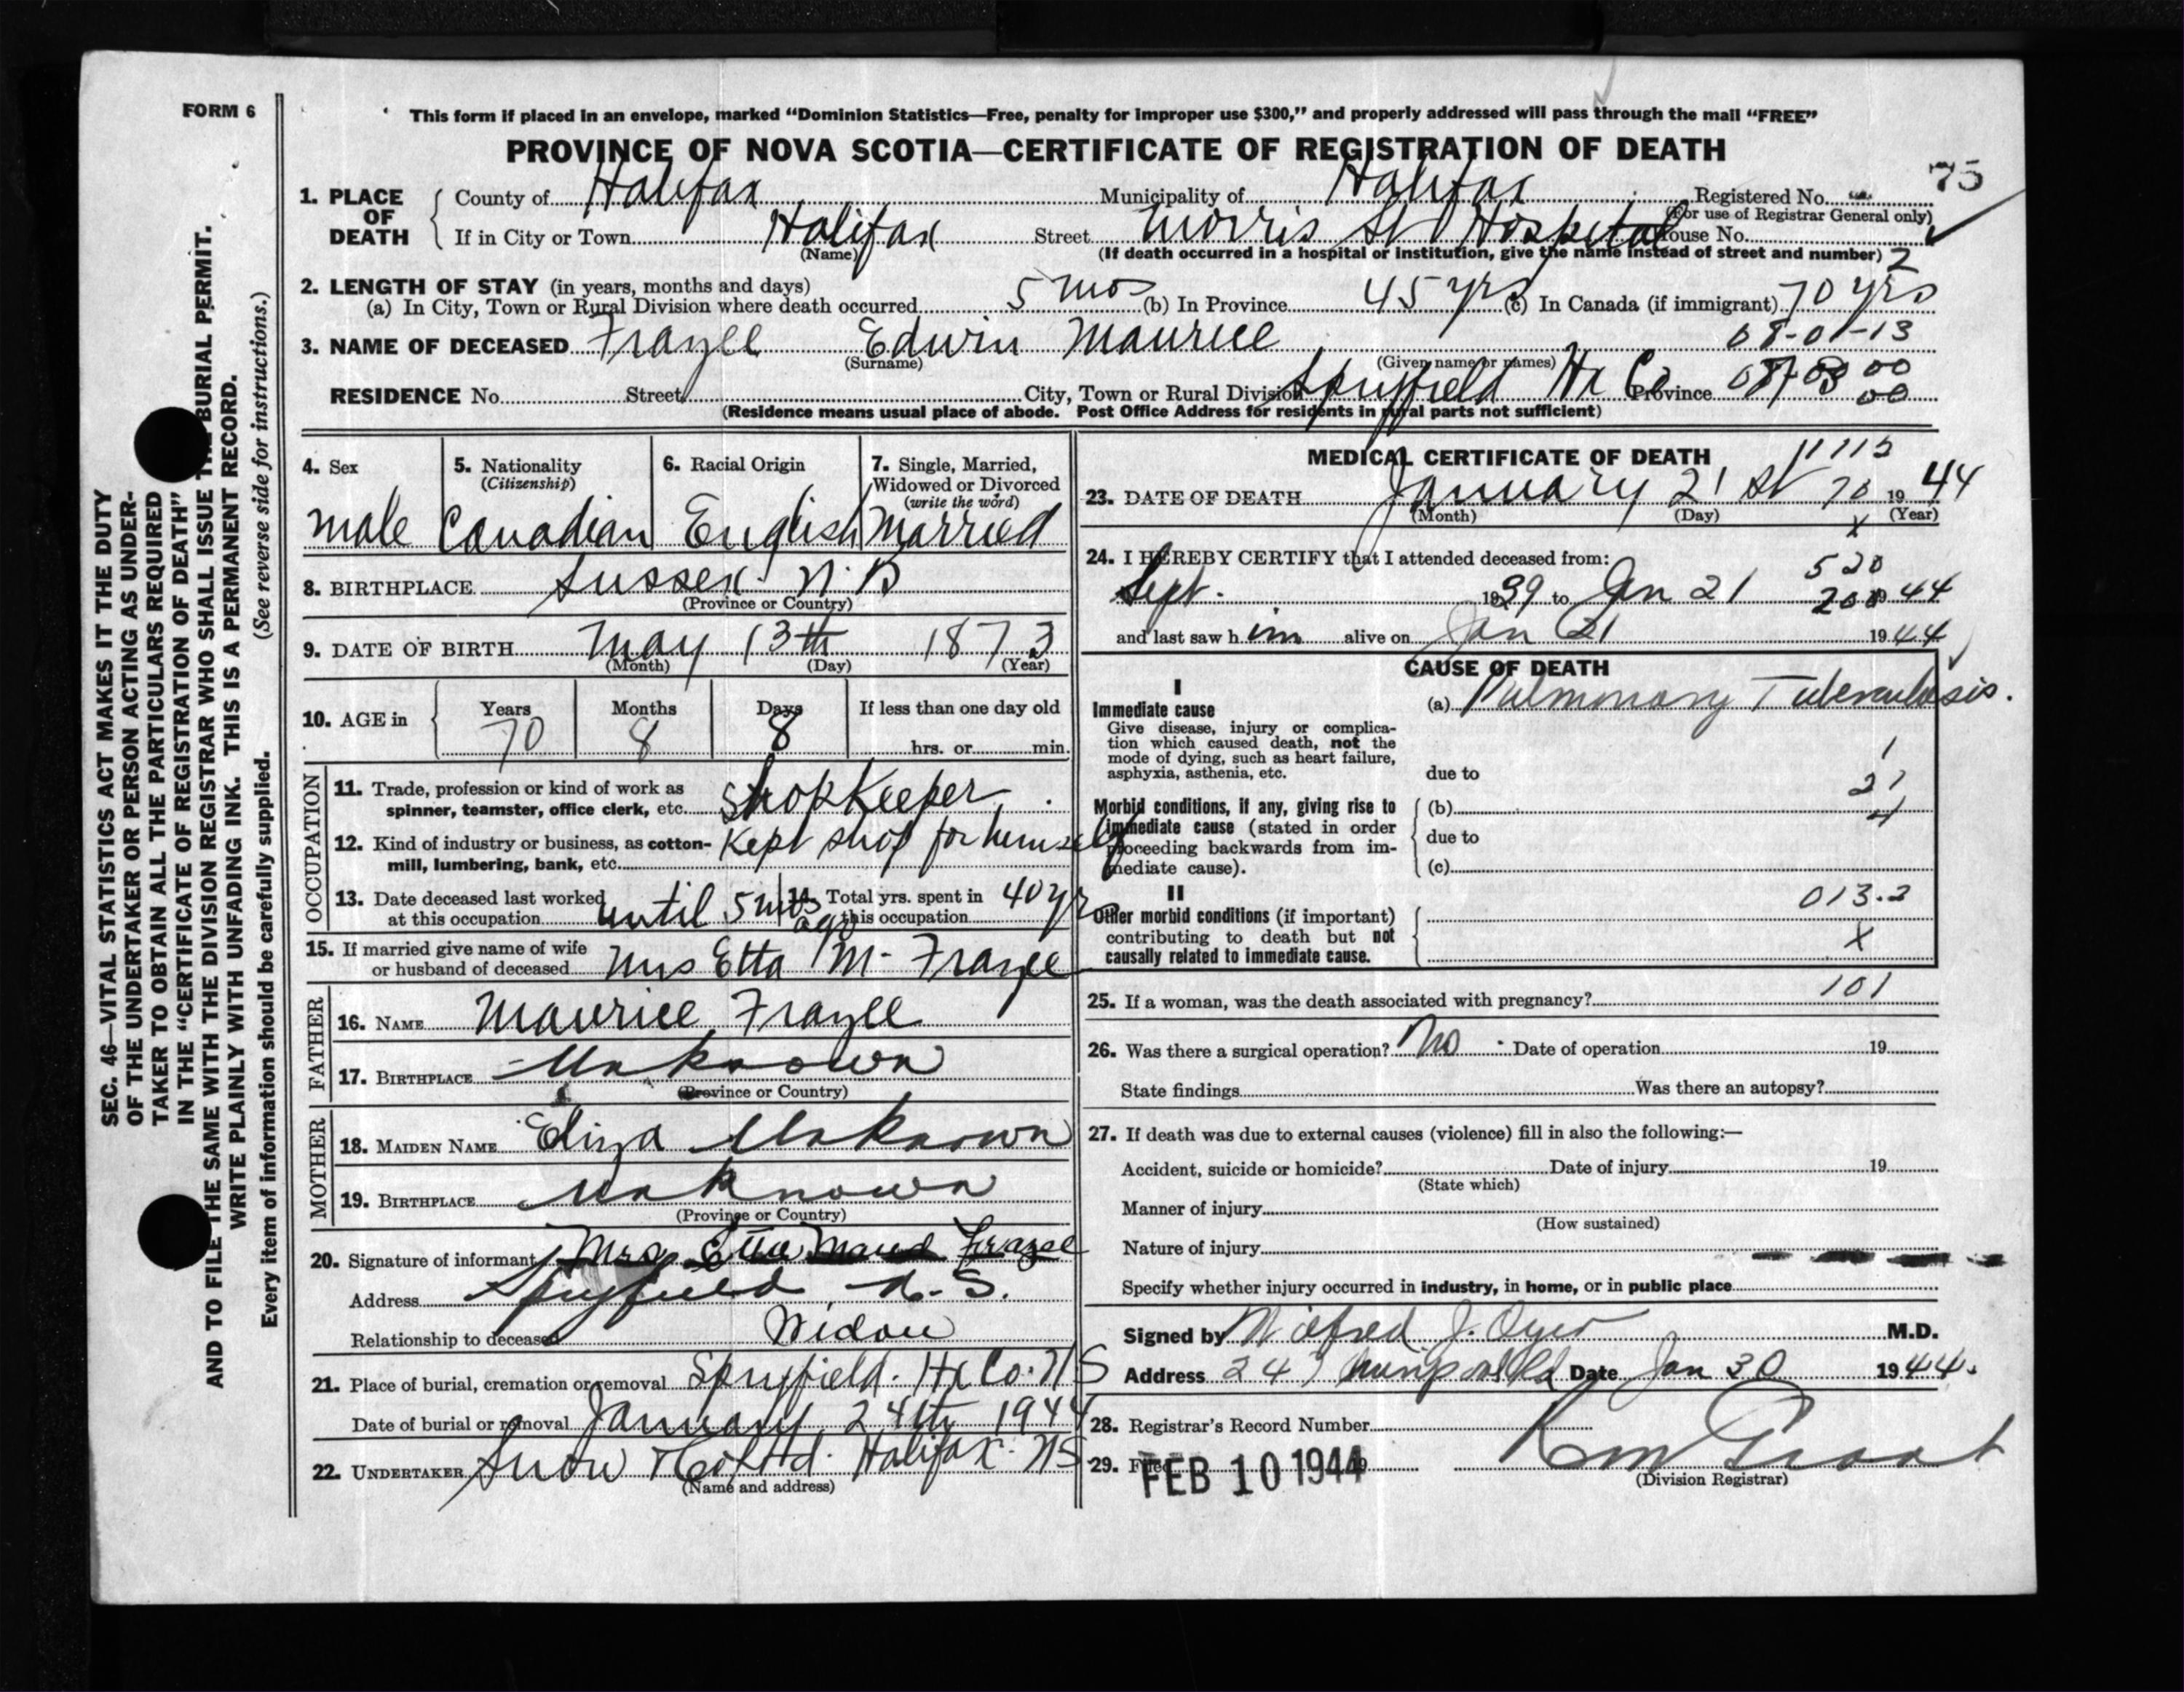 FORM 6
This form if placed in an envelope, marked "Dominion Statistics—Free, penalty for improper use $300," and properly addressed will pass through the mail "FREE"
PROVINCE OF NOVA SCOTIA—CERTIFICATE OF REGISTRATION OF DEATH
75
1. PLACE OF DEATH County of Halifax Municipality of Halifax Registered No.
(For use of Registrar General only)
If in City or Town Halifax Street Morris St Hospital House No.
(Name) (If death occurred in a hospital or institution, give the name instead of street and number) 2
2. LENGTH OF STAY (in years, months and days)
(a) In City, Town or Rural Division where death occurred 5 mos (b) In Province 45 yrs (c) In Canada (if immigrant) 70 yrs
08-01-13
3. NAME OF DECEASED Frazee Edwin Maurice
(Surname) (Given name or names)
RESIDENCE No. Street City, Town or Rural Division Spryfield Hx Co Province 00
00
(Residence means usual place of abode. Post Office Address for residents in rural parts not sufficient)
4. Sex male
5. Nationality (Citizenship) Canadian
6. Racial Origin English
7. Single, Married, Widowed or Divorced (write the word) Married
8. BIRTHPLACE Sussex. N. B
(Province or Country)
9. DATE OF BIRTH May 13th 1873
(Month) (Day) (Year)
10. AGE in Years 70 Months 8 Days 8 If less than one day old hrs. or min.
OCCUPATION
11. Trade, profession or kind of work as spinner, teamster, office clerk, etc. ShopKeeper
12. Kind of industry or business, as cotton-mill, lumbering, bank, etc. Kept shop for himself
13. Date deceased last worked at this occupation until 5 mos ago
14. Total yrs. spent in this occupation 40 yrs
15. If married give name of wife or husband of deceased Mrs Etta M- Frazee
FATHER
16. NAME Maurice Frazee
17. BIRTHPLACE Unknown
(Province or Country)
MOTHER
18. MAIDEN NAME Eliza Unknown
19. BIRTHPLACE Unknown
(Province or Country)
20. Signature of informant Mrs. Etta Maud Frazee
Address Spryfield, N.S.
Relationship to deceased Widow
21. Place of burial, cremation or removal Spryfield. Hx Co. NS
Date of burial or removal January 24th 1944
22. UNDERTAKER Snow & Co Ltd. Halifax. NS
(Name and address)
MEDICAL CERTIFICATE OF DEATH
23. DATE OF DEATH January 21 st 70 19 44
(Month) (Day) (Year)
x
24. I HEREBY CERTIFY that I attended deceased from:
520
Sept. 1939 to Jan 21 1944
and last saw him alive on Jan 21 1944
CAUSE OF DEATH
I
Immediate cause
Give disease, injury or complication which caused death, not the mode of dying, such as heart failure, asphyxia, asthenia, etc.
(a) Pulmonary Tuberculosis.
due to
1
21
4
Morbid conditions, if any, giving rise to immediate cause (stated in order proceeding backwards from immediate cause).
(b)
due to
(c)
II
Other morbid conditions (if important) contributing to death but not causally related to immediate cause.
X
25. If a woman, was the death associated with pregnancy? 101
26. Was there a surgical operation? No Date of operation 19
State findings Was there an autopsy?
27. If death was due to external causes (violence) fill in also the following:—
Accident, suicide or homicide? Date of injury 19
(State which)
Manner of injury
(How sustained)
Nature of injury
Specify whether injury occurred in industry, in home, or in public place
Signed by Wilfred J. M.D.
Address 247 Date Jan 30 1944
28. Registrar's Record Number
29. Filed FEB 10 1944
(Division Registrar)
SEC. 46—VITAL STATISTICS ACT MAKES IT THE DUTY
OF THE UNDERTAKER OR PERSON ACTING AS UNDER-
TAKER TO OBTAIN ALL THE PARTICULARS REQUIRED
IN THE "CERTIFICATE OF REGISTRATION OF DEATH"
AND TO FILE THE SAME WITH THE DIVISION REGISTRAR WHO SHALL ISSUE THE BURIAL PERMIT.
WRITE PLAINLY WITH UNFADING INK. THIS IS A PERMANENT RECORD.
Every item of information should be carefully supplied. (See reverse side for instructions.)